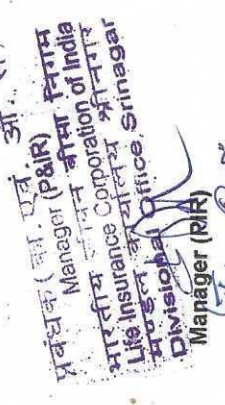 प्रबंधक (का. एवं औ. सं.)
Manager (P&IR)
भारतीय जीवन बीमा निगम
Life Insurance Corporation of India
मण्डल कार्यालय श्रीनगर
Divisional Office, Srinagar
Manager (RIR)